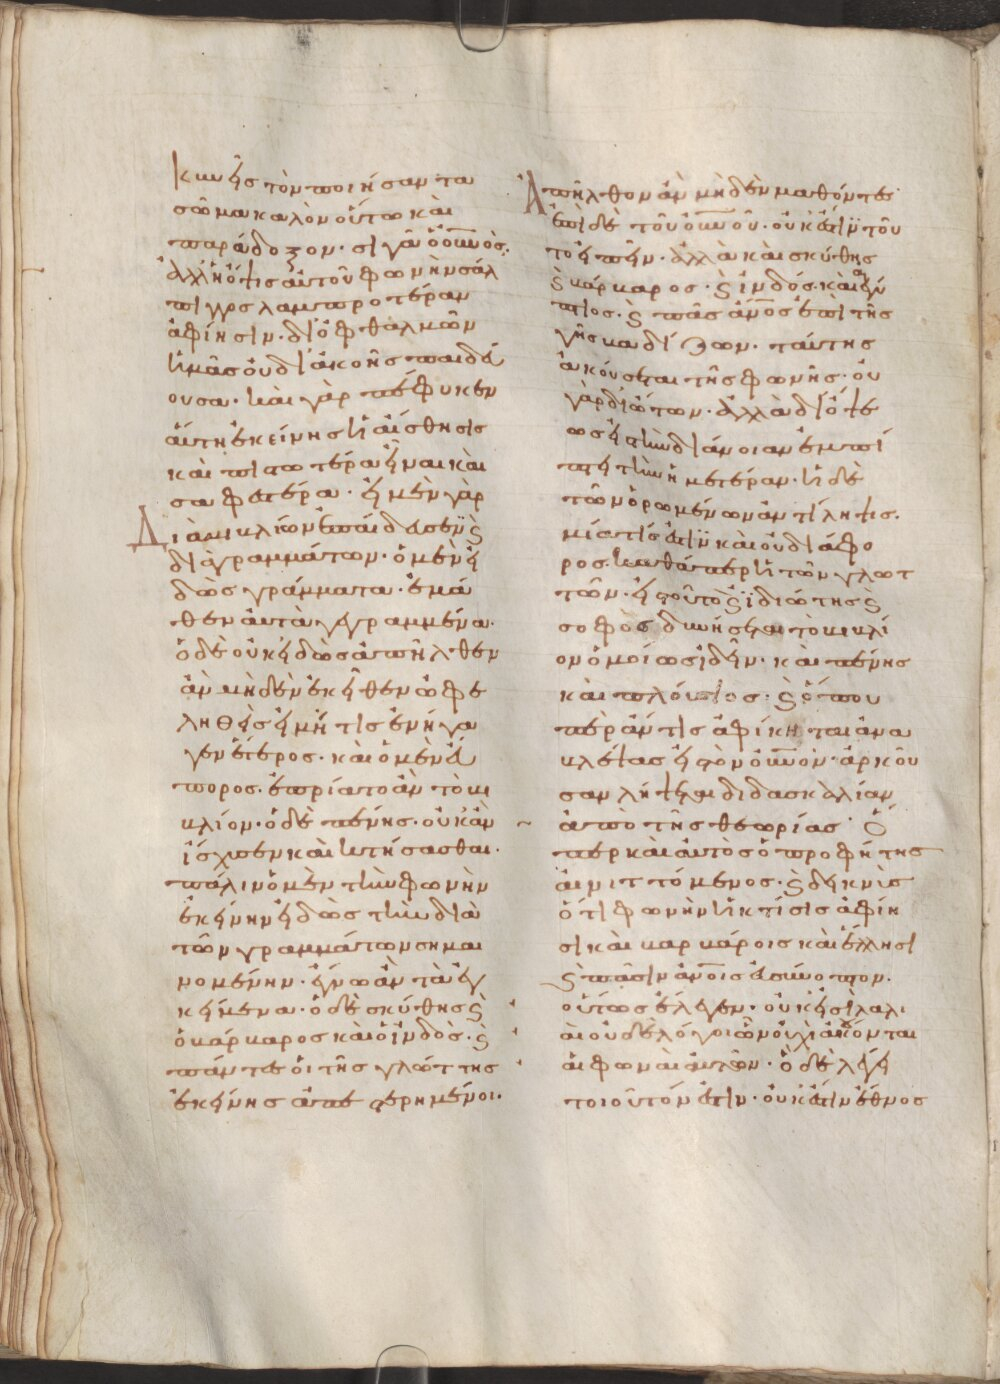 κυνεῖς τὸν ποιήσαντα
σῶμα καλὸν οὕτω καὶ
παράδοξον· σιγᾶ ὁ οὐνὸς·
ἀλλ' ἡ ὄψις αὐτοῦ φωνὴν σάλ
πιγγος λαμπροτέραν
ἀφίησιν· δι' ὀφθαλμῶν
ἡμᾶς οὐ δι' ἀκοῆς παιδεύ
ουσα· καὶ γὰρ πέφυκεν
αὕτη ἐκείνης ἡ αἴσθησις
καὶ πιστωτέρα εἶναι καὶ
σαφεστέρα· εἰ μὲν γὰρ
Διὰ βιβλίων ἐπαίδευσεν ϗ
διὰ γραμμάτων· ὁ μὲν εἰ
δὼς γράμματα· ἔμα
θεν ἂν τὰ γεγραμμένα·
ὁ δὲ οὐκ εἰδὼς ἀπῆλθεν
ἂν μηδὲν ἐκεῖθεν ὠφε
ληθεὶς εἰ μή τις ἐνήγα
γεν ἕτερος· καὶ ὁ μὲν εὔ
πορος· ἐπρίατο ἂν τὸ βι
βλίον· ὁ δὲ πένης· οὐκ ἂν
ἴσχυσεν καὶ κτήσασθαι·
πάλιν ὁ μὲν τὴν φωνὴν
ἐκείνην εἰδὼς τὴν διὰ
τῶν γραμμάτων σημαι
νομένην· ἔγνω ἂν τὰ ἐγ
κείμενα· ὁ δὲ σκύθης ϗ
ὁ βάρβαρος καὶ ὁ ἰνδὸς· ϗ
πάντες οἱ τῆς γλώττης
ἐκείνης ἀπεστερημένοι·
Ἀπῆλθον ἂν μηδὲν μαθόντες·
ἐπὶ δὲ τοῦ οὐνοῦ· οὐκ ἔστιν τοῦ
το εἰπεῖν· ἀλλὰ καὶ σκύθης
ϗ βάρβαρος· ϗ ἰνδός· καὶ αἰγύ
πτιος· ϗ πᾶς ἄνος ἐπὶ τῆς
γῆς βαδίζων· ταύτης
ἀκούσεται τῆς φωνῆς· οὐ
γὰρ δι' ὤτων· ἀλλὰ δι' ὄψε
ως εἰς τὴν διάνοιαν ἐμπί
πτει τὴν ἡμετέραν· ἡ δὲ
τῶν ὁρωμένων ἀντίληψις·
μία τίς ἐστιν καὶ οὐ διάφο
ρος· καθάπερ ἡ τῶν γλωτ
τῶν· εἰς τοῦτο ϗ ἰδιώτης ϗ
σοφὸς δυνήσεται τὸ βιβλί
ον ὁμοίως ἰδεῖν· καὶ πένης
καὶ πλούσιος· ϗ ὅπου
περ ἄν τις ἀφίκηται ἀνα
βλέψας εἰς τὸν οὐνὸν· ἀρκοῦ
σαν λήψεται διδασκαλίαν
ἀπὸ τῆς θεωρίας· ὅ
περ καὶ αὐτὸς ὁ προφήτης
αἰνιττόμενος· ϗ δεικνὺς
ὅτι φωνὴν ἡ κτίσις ἀφίη
σι καὶ βαρβάροις καὶ ἕλλησι
ϗ πᾶσιν ἀνοις εὐσύνοπτον·
οὕτως ἔλεγεν· οὐκ εἰσὶ λαλι
αὶ οὐδὲ λόγοι ὧν οὐχὶ ἀκούονται
αἱ φωναὶ αὐτῶν· ὁ δὲ λέγει
τοιοῦτόν ἐστιν· οὐκ ἔστιν ἔθνος